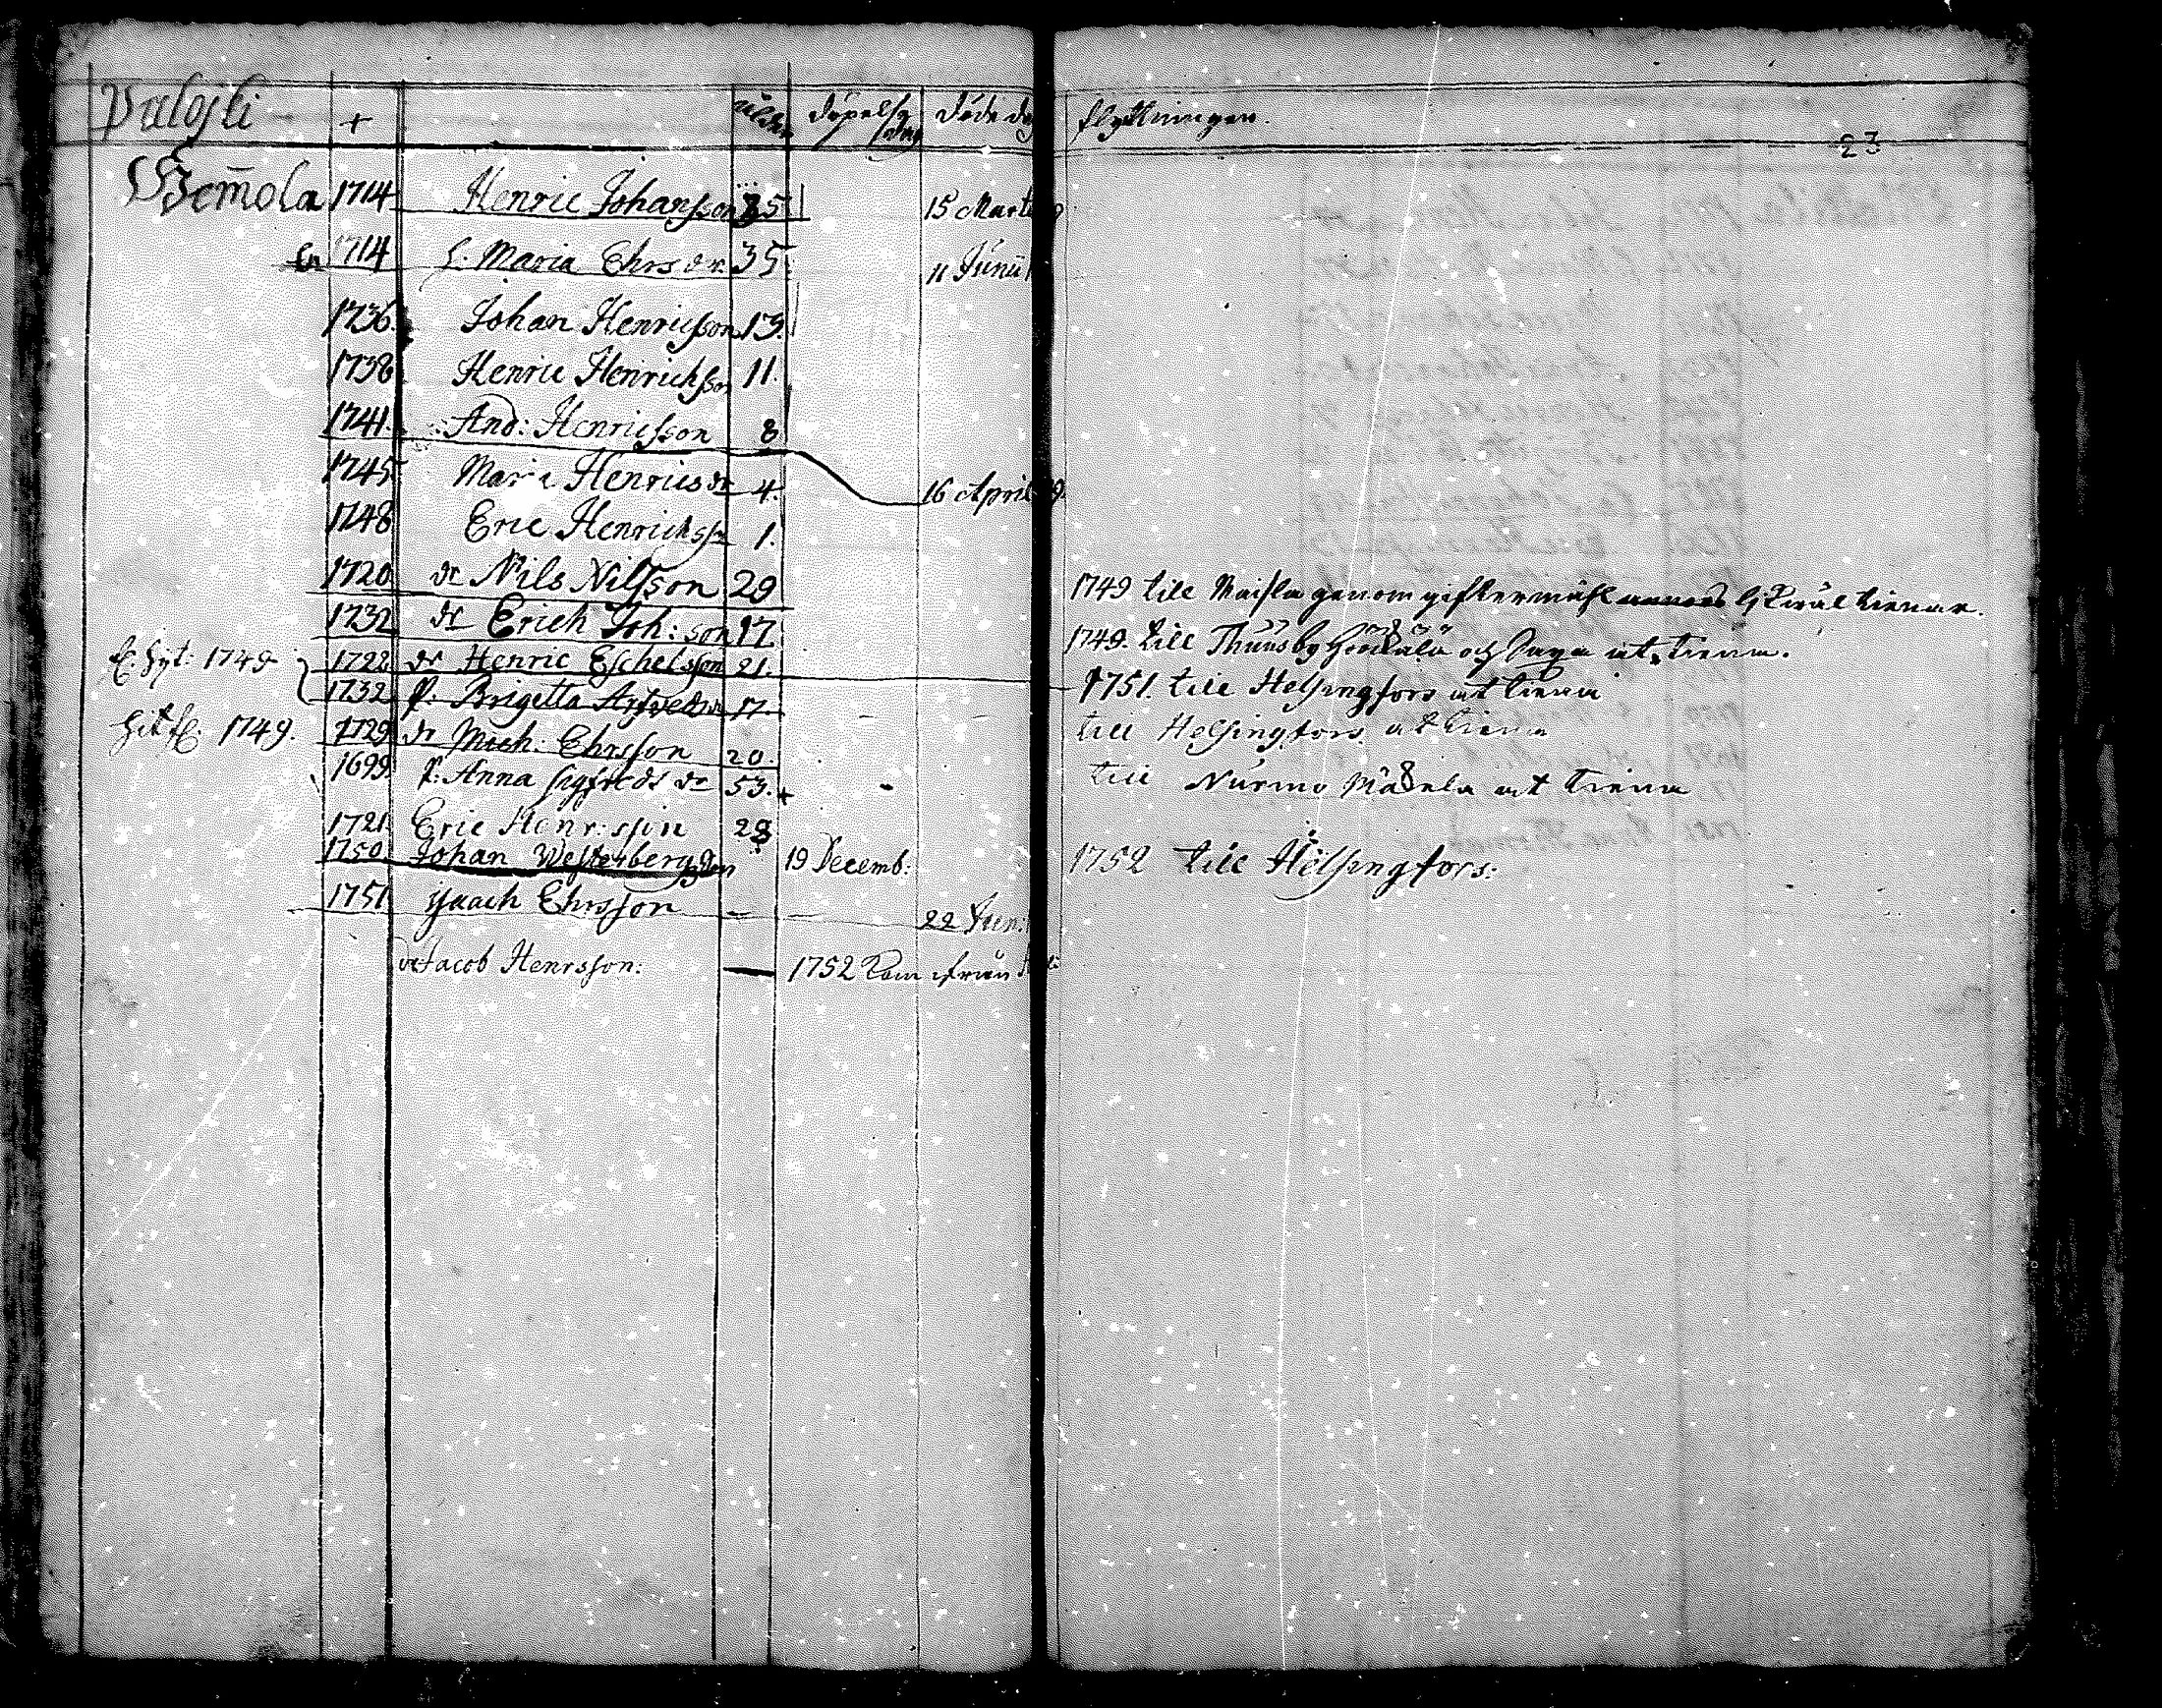 Palojki + ålder döpelse dag döde dag flyttningen.
23
Hemola 1714 Henric Johansson 35 15 Marti
1714 h. Maria Ehrsdr. 35 11 Junii
1736. Johan Henricsson 13.
1738 Henric Henrichsson 11.
1741. And: Henricsson 8
1745 Maria Henricsdr 4. 16 April
1748 Eric Henrichsson 1.
1720 dr Nils Nilsson 29 1749 till genom giftermåhl
1732 dr Erich Joh:son 17 1749. till Thuusby och at tiena.
1749 1728 dr Henric Eschelsson 21. 1751. till Helsingfors at tiena
1732 P. Brigetta 17.
hit 1749. 1729 dr Mich: Ehrsson 20. till Helsingfors at tiena
1699 P: Anna Sigfreds dr 53. + till Nurmo at tiena
1721 Eric Henr:sson 28
1750 Johan Westerberg 19 Decemb: 1752 till Helsingfors:
1751 Ehrsson 22 Jun:
dr Jacob Henrsson: — 1752 kom ifrån